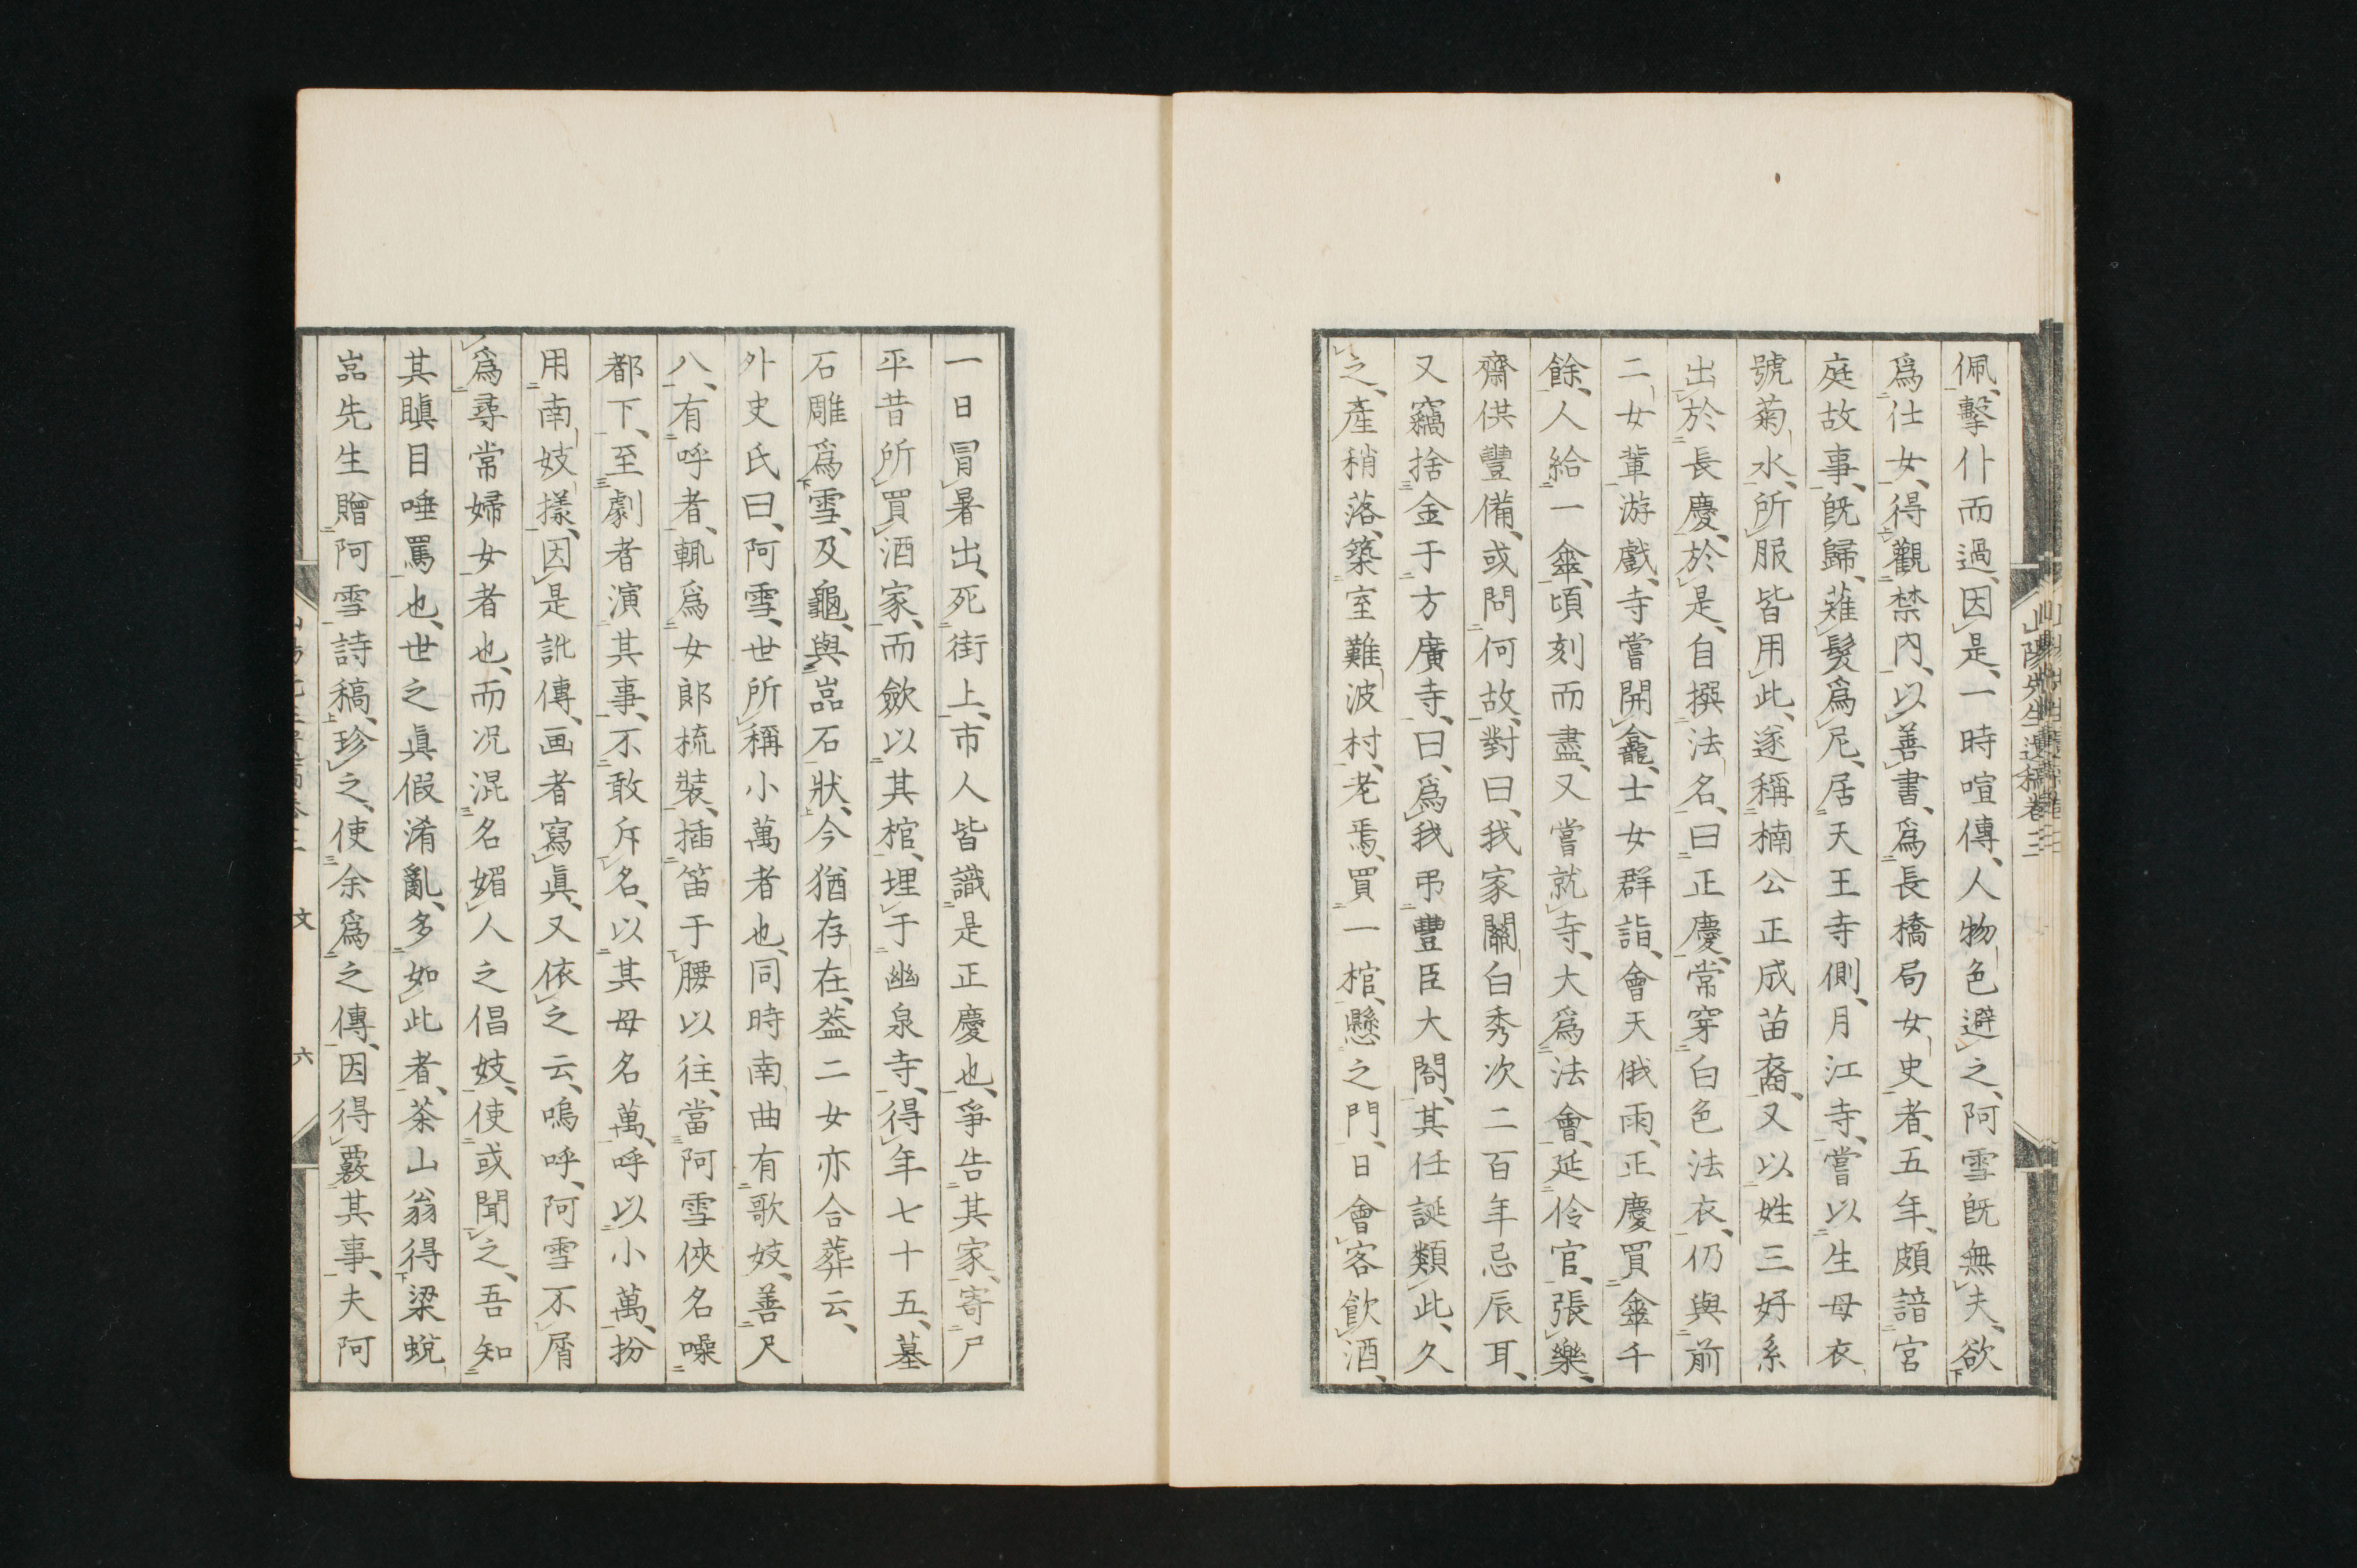 佩、擊仆而過、因是、一時喧傳、人物色避之、阿雪既無夫、欲
爲仕女、得觀禁內、以善書、爲長橋局女史者、五年、頗諳宮
庭故事、既歸、薙髮爲尼、居天王寺側、月江寺、嘗以生母衣
號菊水、所服皆用此、遂稱楠公正成苗裔、又以姓三好系
出於長慶、於是、自撰法名、曰正慶、常穿白色法衣、仍與前
二女輩游戲、寺嘗開龕、士女群詣、會天俄雨、正慶買傘千
餘、人給一傘、頃刻而盡、又嘗就寺、大爲法會、延伶官、張樂、
齋供豐備、或問何故、對曰、我家關白秀次二百年忌辰耳、
又竊捨金于方廣寺、曰、爲我弔豐臣大閤、其任誕類此、久
之、產稍落、築室難波村、老焉、買一棺、懸之門、日會客飲酒、
山陽先生遺稿卷三
一日冒暑出、死街上、市人皆識是正慶也、爭告其家、寄尸
平昔所買酒家、而斂以其棺、埋于幽泉寺、得年七十五、墓
石雕爲雪、及龜、與嵓石狀、今猶存在、葢二女亦合葬云、
外史氏曰、阿雪、世所稱小萬者也、同時南曲有歌妓、善尺
八、有呼者、輒爲女郎梳裝、插笛于腰以往、當阿雪俠名噪
都下、至劇者演其事、不敢斥名、以其母名萬、呼以小萬、扮
用南妓樣、因是訛傳、画者寫眞、又依之云、嗚呼、阿雪不屑
爲尋常婦女者也、而況混名媚人之倡妓、使或聞之、吾知
其瞋目唾罵也、世之眞假淆亂、多如此者、茶山翁得梁蛻
嵓先生贈阿雪詩稿、珍之、使余爲之傳、因得覈其事、夫阿
文 六